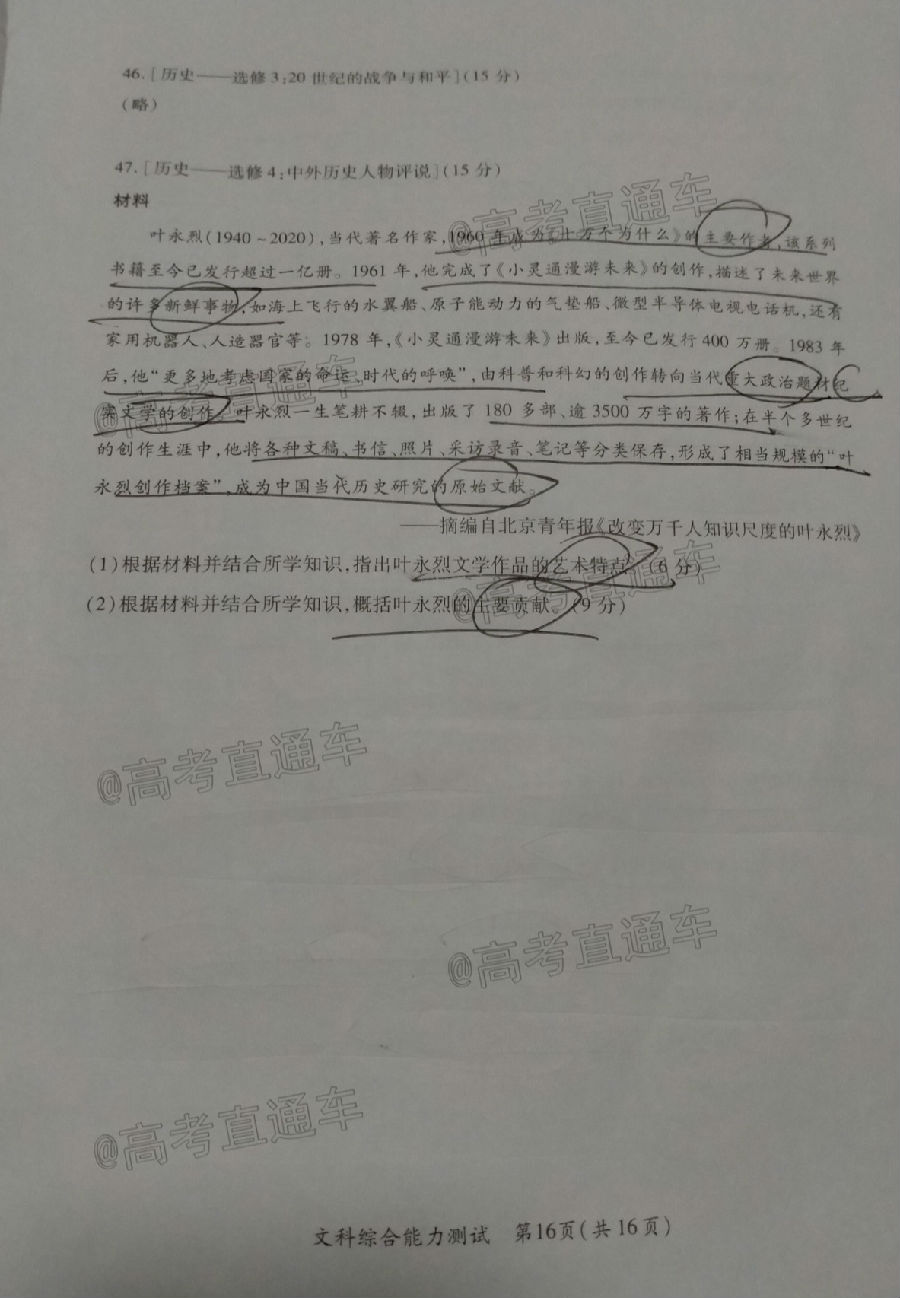 46.[历史——选修3:20世纪的战争与和平](15分)
(略)
47.[历史——选修4:中外历史人物评说](15分)
材料
@高考直通车
叶永烈(1940~2020),当代著名作家,1960年成为《十万个为什么》的主要作者,该系列
书籍至今已发行超过一亿册。1961年,他完成了《小灵通漫游未来》的创作,描述了未来世界
的许多新鲜事物,如海上飞行的水翼船、原子能动力的气垫船、微型半导体电视电话机,还有
家用机器人、人造器官等。1978年,《小灵通漫游未来》出版,至今已发行400万册。1983年
后,他“更多地考虑国家的命运,时代的呼唤”,由科普和科幻的创作转向当代重大政治题材纪
@高考直通车
实文学的创作。叶永烈一生笔耕不辍,出版了180多部、逾3500万字的著作;在半个多世纪
的创作生涯中,他将各种文稿、书信、照片、采访录音、笔记等分类保存,形成了相当规模的“叶
永烈创作档案”,成为中国当代历史研究的原始文献。
——摘编自北京青年报《改变万千人知识尺度的叶永烈》
(1)根据材料并结合所学知识,指出叶永烈文学作品的艺术特点。(6分)
@高考直通车
(2)根据材料并结合所学知识,概括叶永烈的主要贡献。(9分)
@高考直通车
@高考直通车
@高考直通车
文科综合能力测试 第16页(共16页)